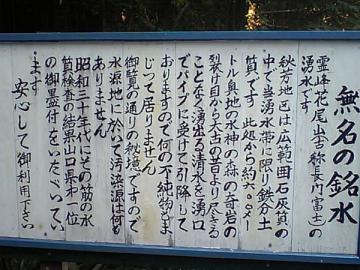 無名の銘水
霊峰花尾山古称長門富士の
湧水です。
秋芳地区は広範囲石灰質の
中で当湧水帯に限り鉄分土
質です 此処から約六〇〇メー
トル奥地の水神の森の奇岩の
裂け目から大古の昔より尽きる
ことなく湧出る清水を湧口
でパイプに受けて引降して
おりますので何の不純物もま
じって居りません
御覧の通りの秘境ですので
水源地に於いて汚染源は何も
ありません
昭和五十年代にその筋の水
質検査の結果山口県下一位
の御墨付をいただいてい
ます
安心して御利用下さい